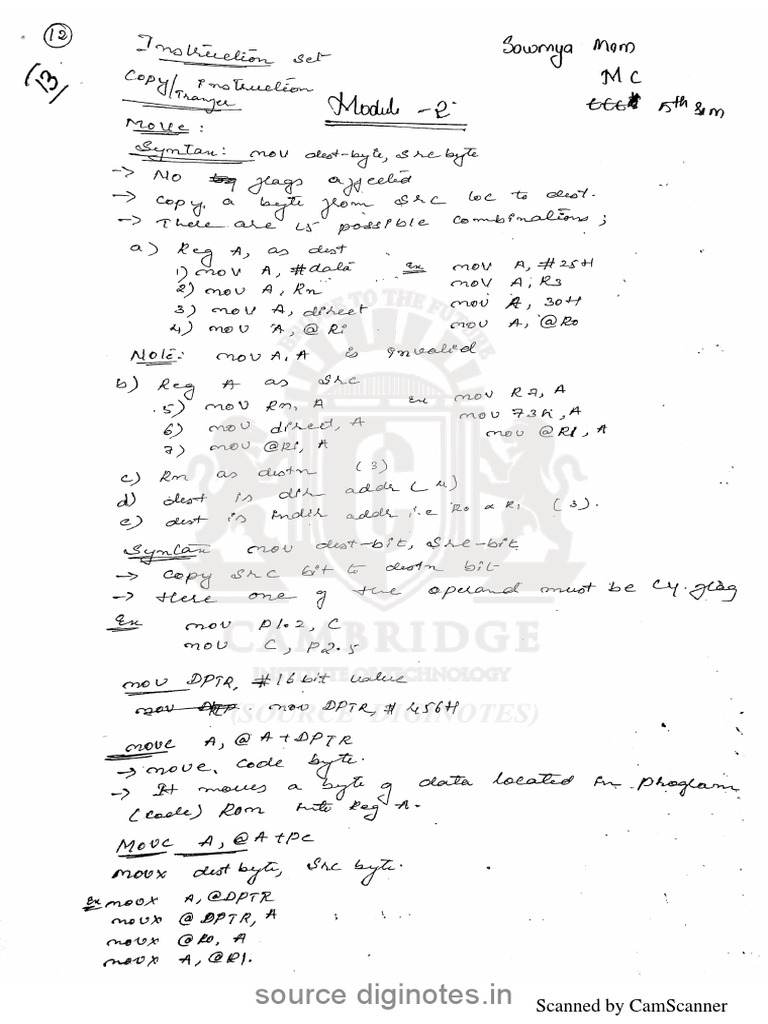 12
13
Instruction set
Sowmya Mam
Copy/Tranfer Instruction
MC
Module - 2
5th Sem
Move:
Syntax: mov dest-byte, src byte
-> No flags affected
-> Copy a byte from src loc to dest.
-> There are 15 possible combinations;
a) Reg A, as dest
1) mov A, #data Ex mov A, #25H
2) mov A, Rn mov A, R3
3) mov A, direct mov A, 30H
4) mov A, @Ri mov A, @R0
Note: mov A, A is invalid
b) Reg A as src
5) mov Rn, A Ex mov R7, A
6) mov direct, A mov 73H, A
7) mov @Ri, A mov @R1, A
c) Rn as destn (3)
d) dest is dir addr (4)
e) dest is indir addr i.e R0 & R1 (3).
Syntax mov dest-bit, src-bit
-> Copy src bit to destn bit
-> Here one of the operand must be Cy.flag
Ex mov P1.2, C
mov C, P2.5
mov DPTR, #16 bit value
mov DPTR, #456H
movc A, @A+DPTR
-> move code byte.
-> It moves a byte of data located in program
(code) Rom into Reg A.
Movc A, @A+PC
movx dest byte, src byte.
Ex movx A, @DPTR
movx @DPTR, A
movx @R0, A
movx A, @R1.
BRIDGE TO THE FUTURE
CAMBRIDGE
INSTITUTE OF TECHNOLOGY
(SOURCE DIGINOTES)
source diginotes.in
Scanned by CamScanner